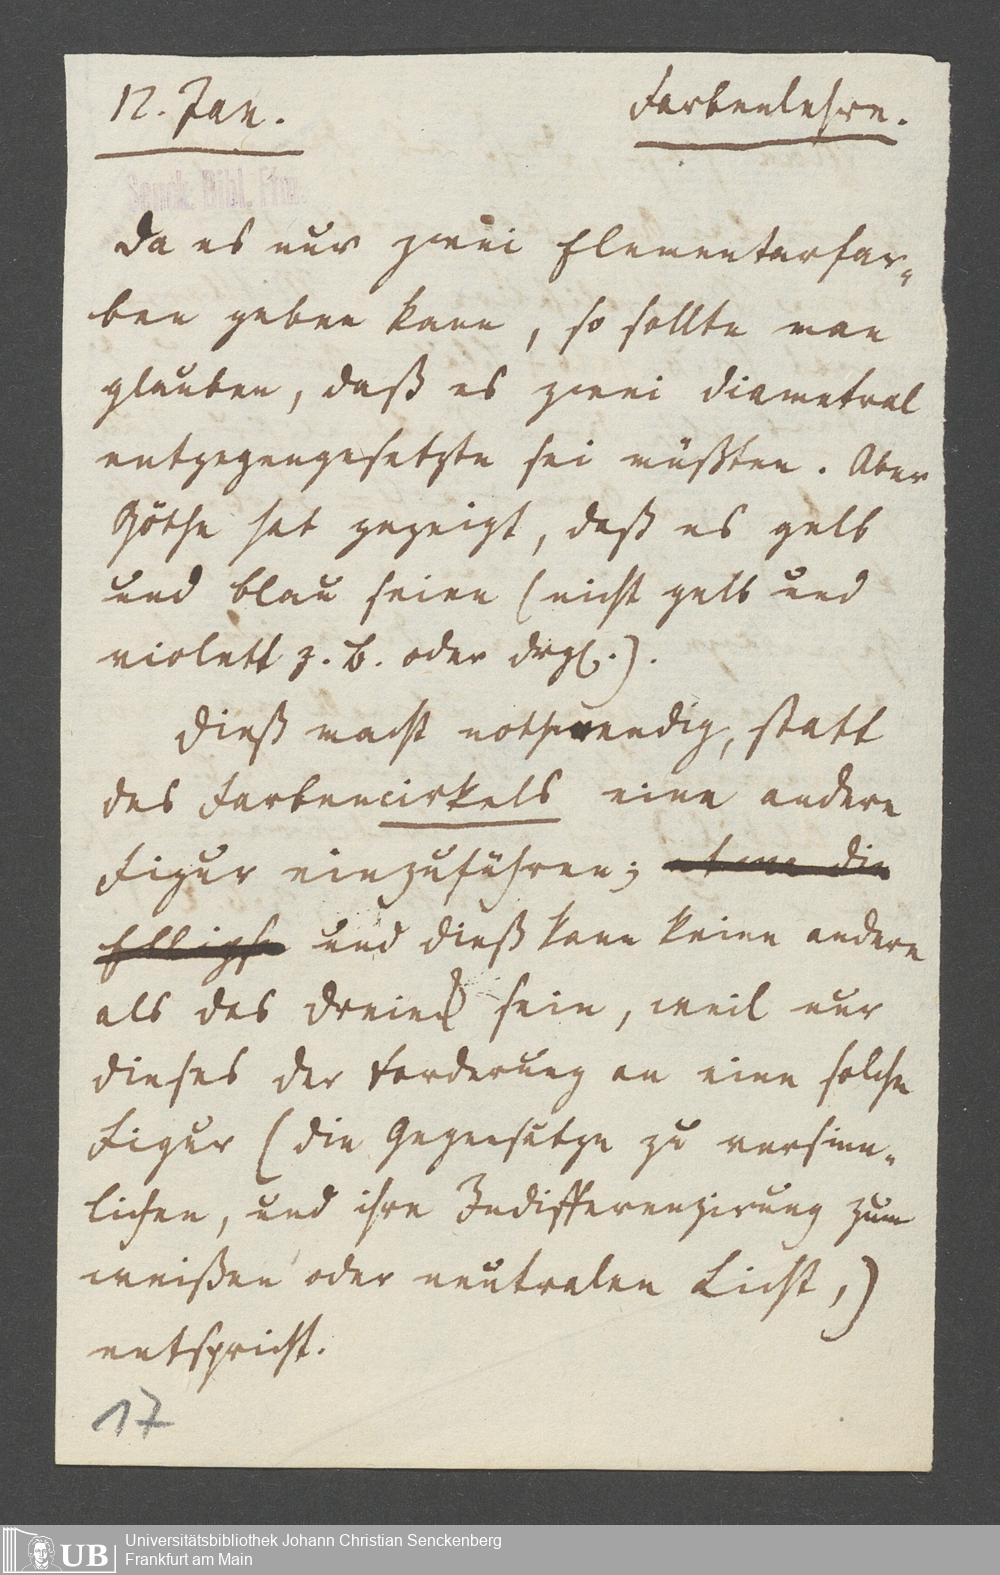 12. Jan.
Farbenlehre.
Senck. Bibl. Ffm.
Da es nur zwei Elementarfar-
ben geben kann, so sollte man
glauben, daß es zwei diametral
entgegengesetzte sei müßten. Aber
Göthe hat gezeigt, daß es gelb
und blau seien (nicht gelb und
violett z. B. oder drgl.).
Dieß macht nothwendig, statt
des Farbencirkels eine andere
Figur einzuführen; etwa die
Ellipse und dieß kann keine andere
als das Dreieck sein, weil nur
dieses der Forderung an eine solche
Figur (die Gegensätze zu versinn-
lichen, und ihre Indifferenzirung zum
weißen oder neutralen Licht,)
entspricht.
17
UB
Universitätsbibliothek Johann Christian Senckenberg
Frankfurt am Main